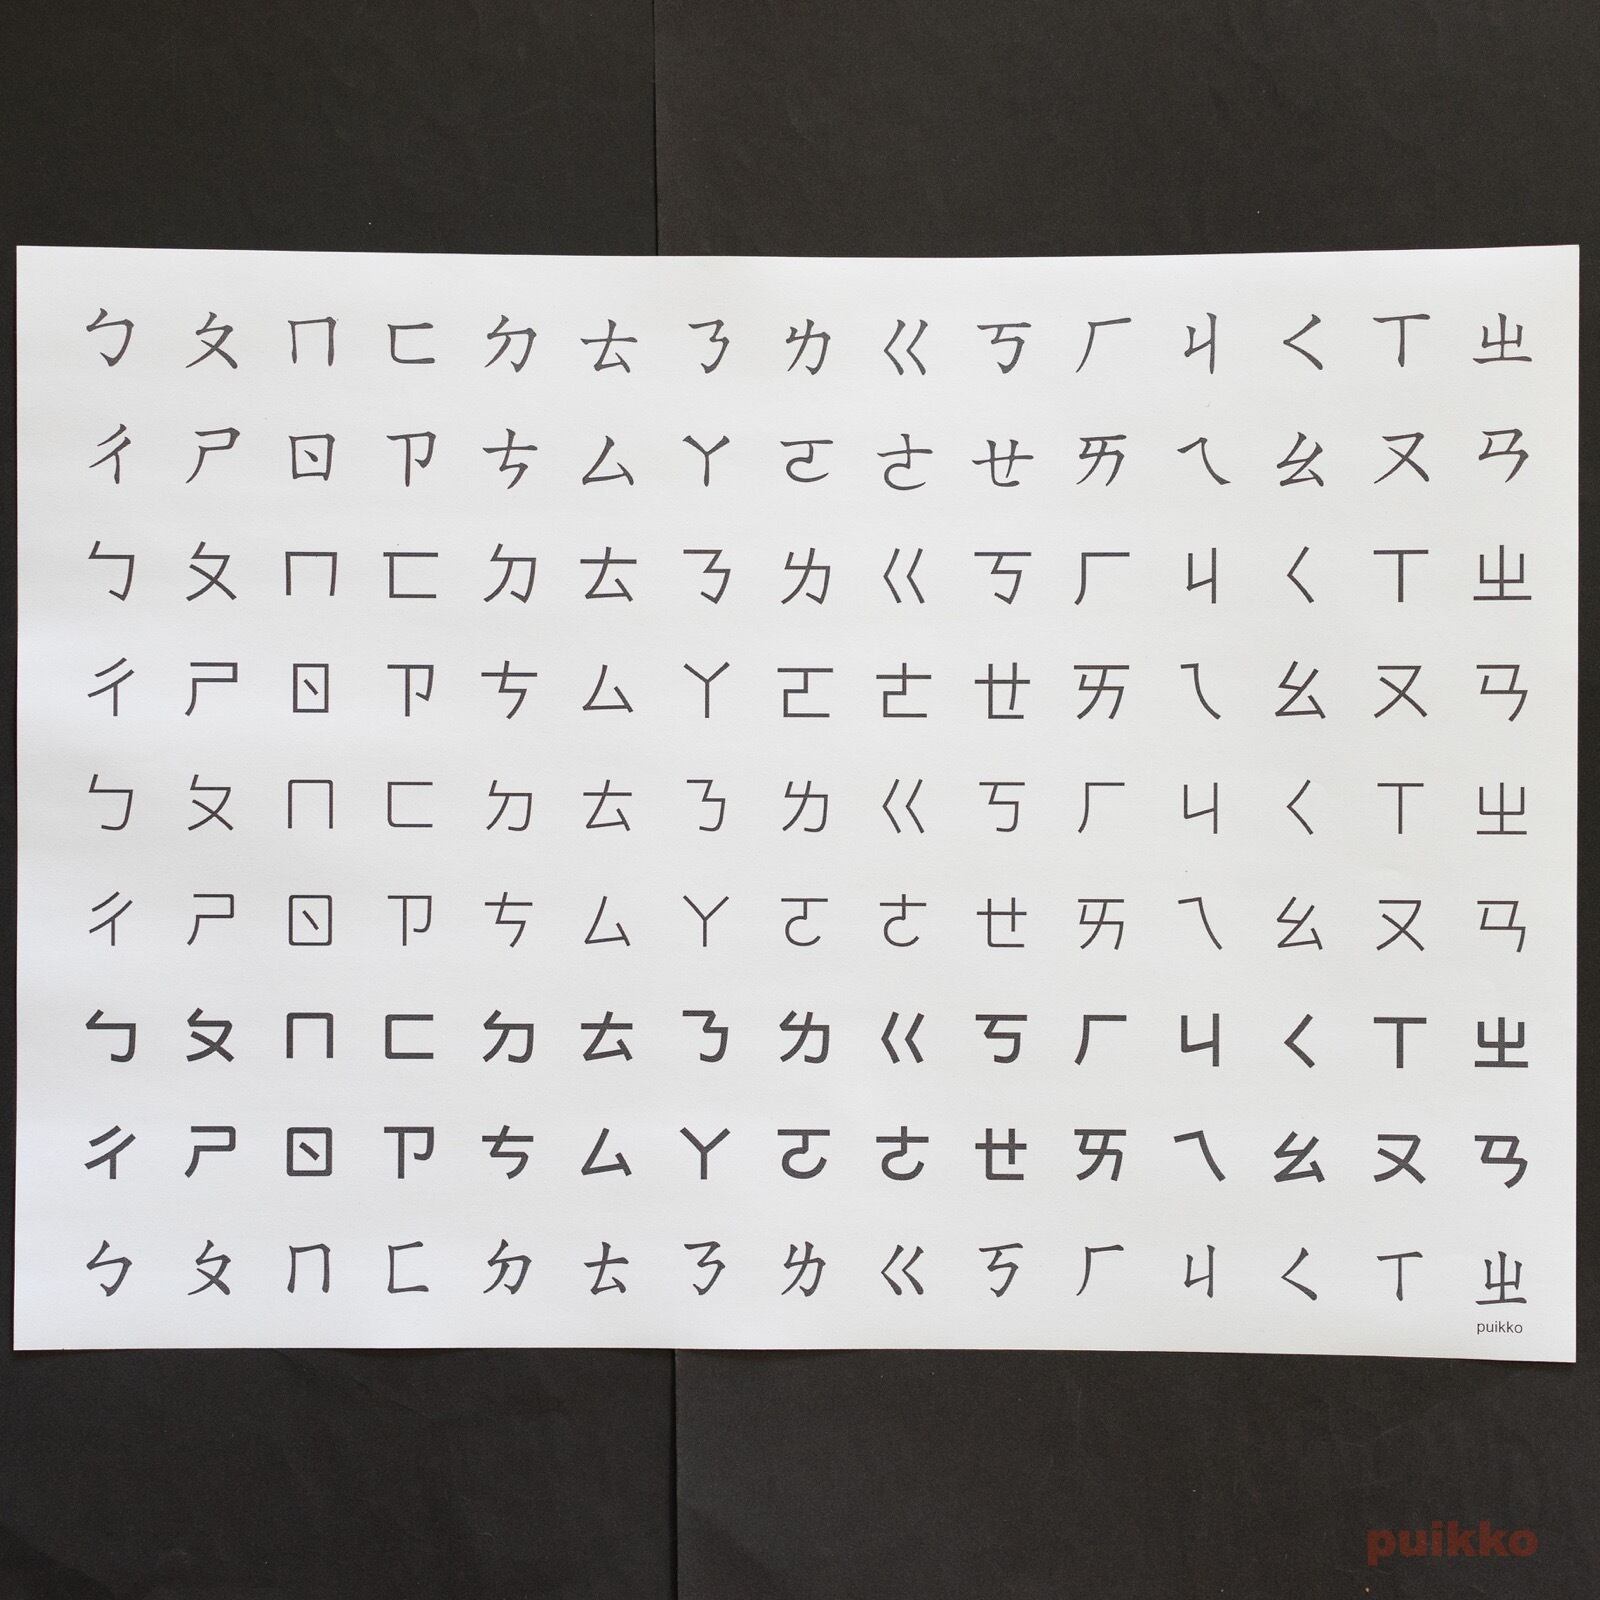 ㄅ ㄆ ㄇ ㄈ ㄉ ㄊ ㄋ ㄌ ㄍ ㄎ ㄏ ㄐ ㄑ ㄒ ㄓ
ㄔ ㄕ ㄖ ㄗ ㄘ ㄙ ㄚ ㄛ ㄜ ㄝ ㄞ ㄟ ㄠ ㄡ ㄢ
ㄅ ㄆ ㄇ ㄈ ㄉ ㄊ ㄋ ㄌ ㄍ ㄎ ㄏ ㄐ ㄑ ㄒ ㄓ
ㄔ ㄕ ㄖ ㄗ ㄘ ㄙ ㄚ ㄛ ㄜ ㄝ ㄞ ㄟ ㄠ ㄡ ㄢ
ㄅ ㄆ ㄇ ㄈ ㄉ ㄊ ㄋ ㄌ ㄍ ㄎ ㄏ ㄐ ㄑ ㄒ ㄓ
ㄔ ㄕ ㄖ ㄗ ㄘ ㄙ ㄚ ㄛ ㄜ ㄝ ㄞ ㄟ ㄠ ㄡ ㄢ
ㄅ ㄆ ㄇ ㄈ ㄉ ㄊ ㄋ ㄌ ㄍ ㄎ ㄏ ㄐ ㄑ ㄒ ㄓ
ㄔ ㄕ ㄖ ㄗ ㄘ ㄙ ㄚ ㄛ ㄜ ㄝ ㄞ ㄟ ㄠ ㄡ ㄢ
ㄅ ㄆ ㄇ ㄈ ㄉ ㄊ ㄋ ㄌ ㄍ ㄎ ㄏ ㄐ ㄑ ㄒ ㄓ
puikko
puikko